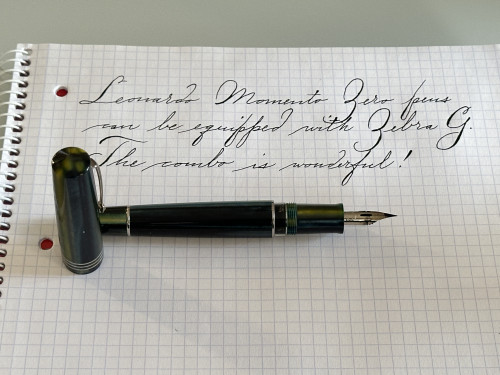 Leonardo Momento Zero pens
can be equipped with Zebra G.
The combo is wonderful!